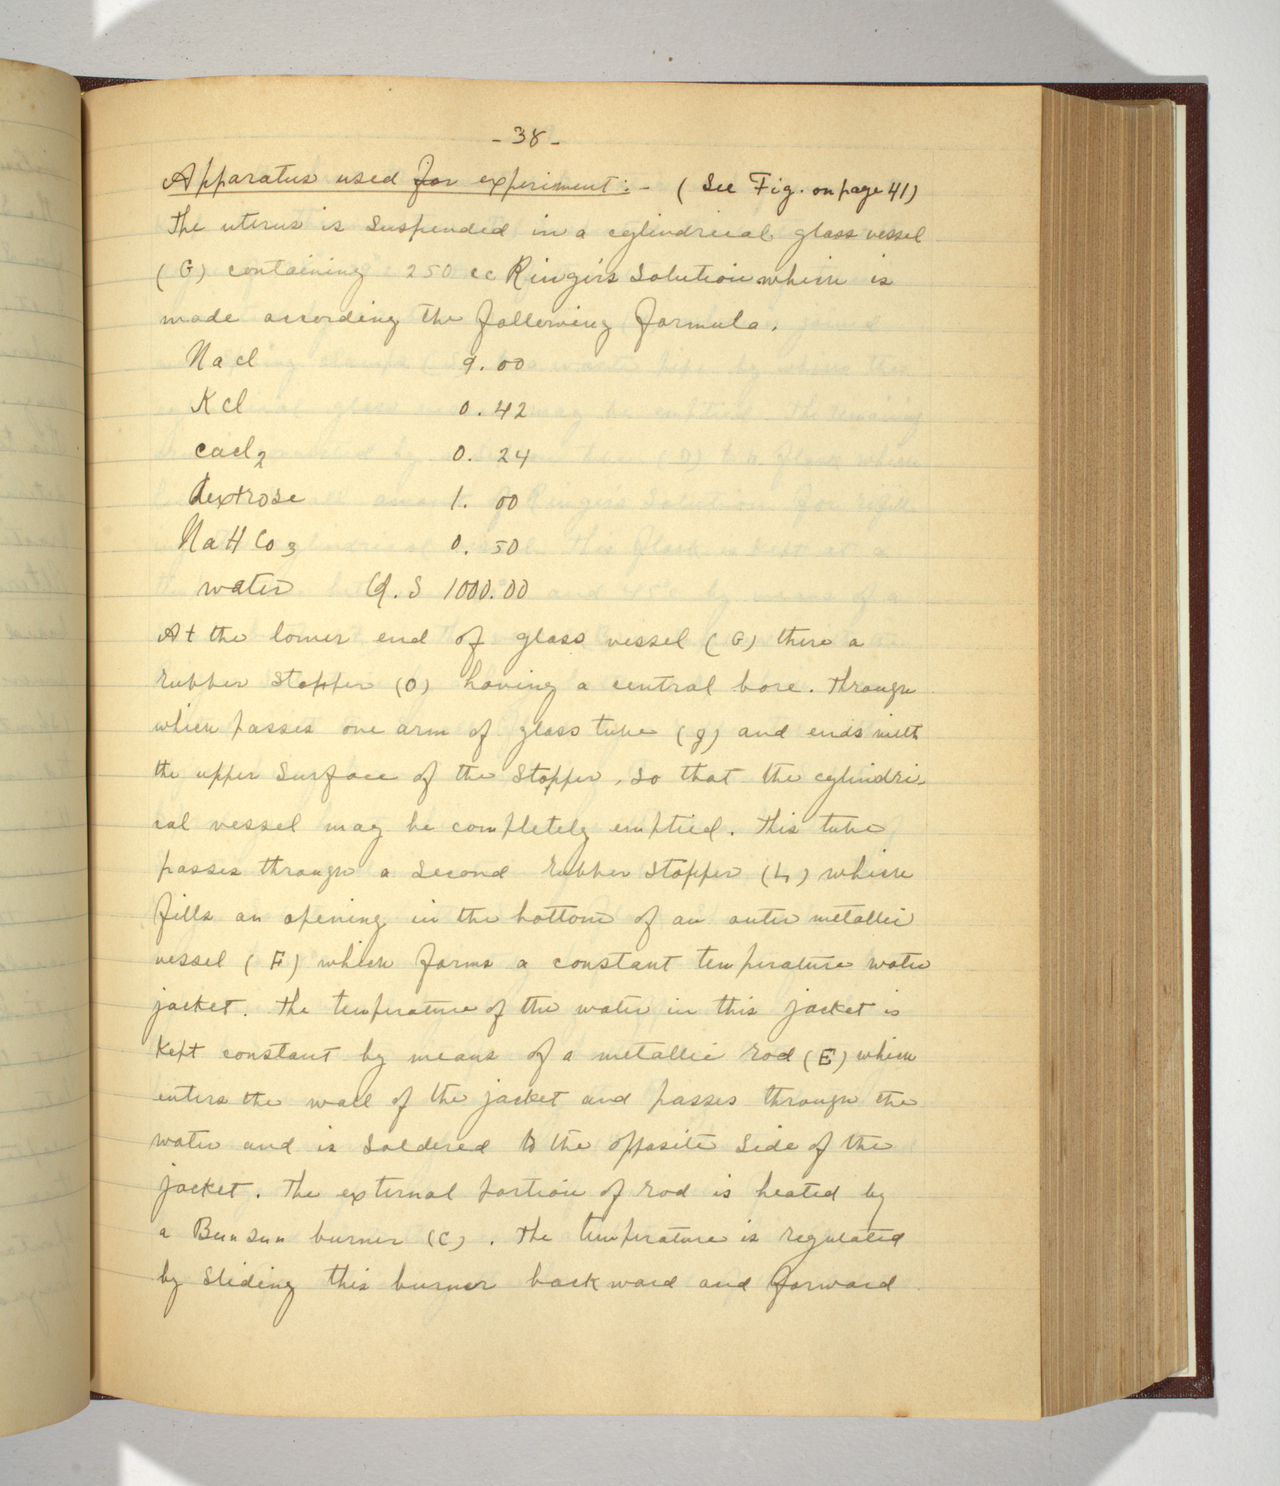 - 38 -
Apparatus used for experiment:- ( See Fig. on page 41)
The uterus is suspended in a cylindrical glass vessel
(G) containing 250 cc Ringer's Solution which is
made according the following formula.
Nacl 9.00
Kcl 0.42
cacl2 0.24
dextrose 1.00
NaHCo3 0.50
water Q.S 1000.00
At the lower end of glass vessel (G) there a
rubber stopper (O) having a central bore. Through
which passes one arm of glass tube (g) and ends with
the upper surface of the stopper, so that the cylindri-
cal vessel may be completely emptied. This tube
passes through a second rubber stopper (L) which
fills an opening in the bottom of an outer metallic
vessel (F) which forms a constant temperature water
jacket. The temperature of the water in this jacket is
kept constant by means of a metallic rod (E) which
enters the wall of the jacket and passes through the
water and is soldered to the opposite side of the
jacket. The external portion of rod is heated by
a Bunsun burner (C). The temperature is regulated
by sliding this burner backward and forward